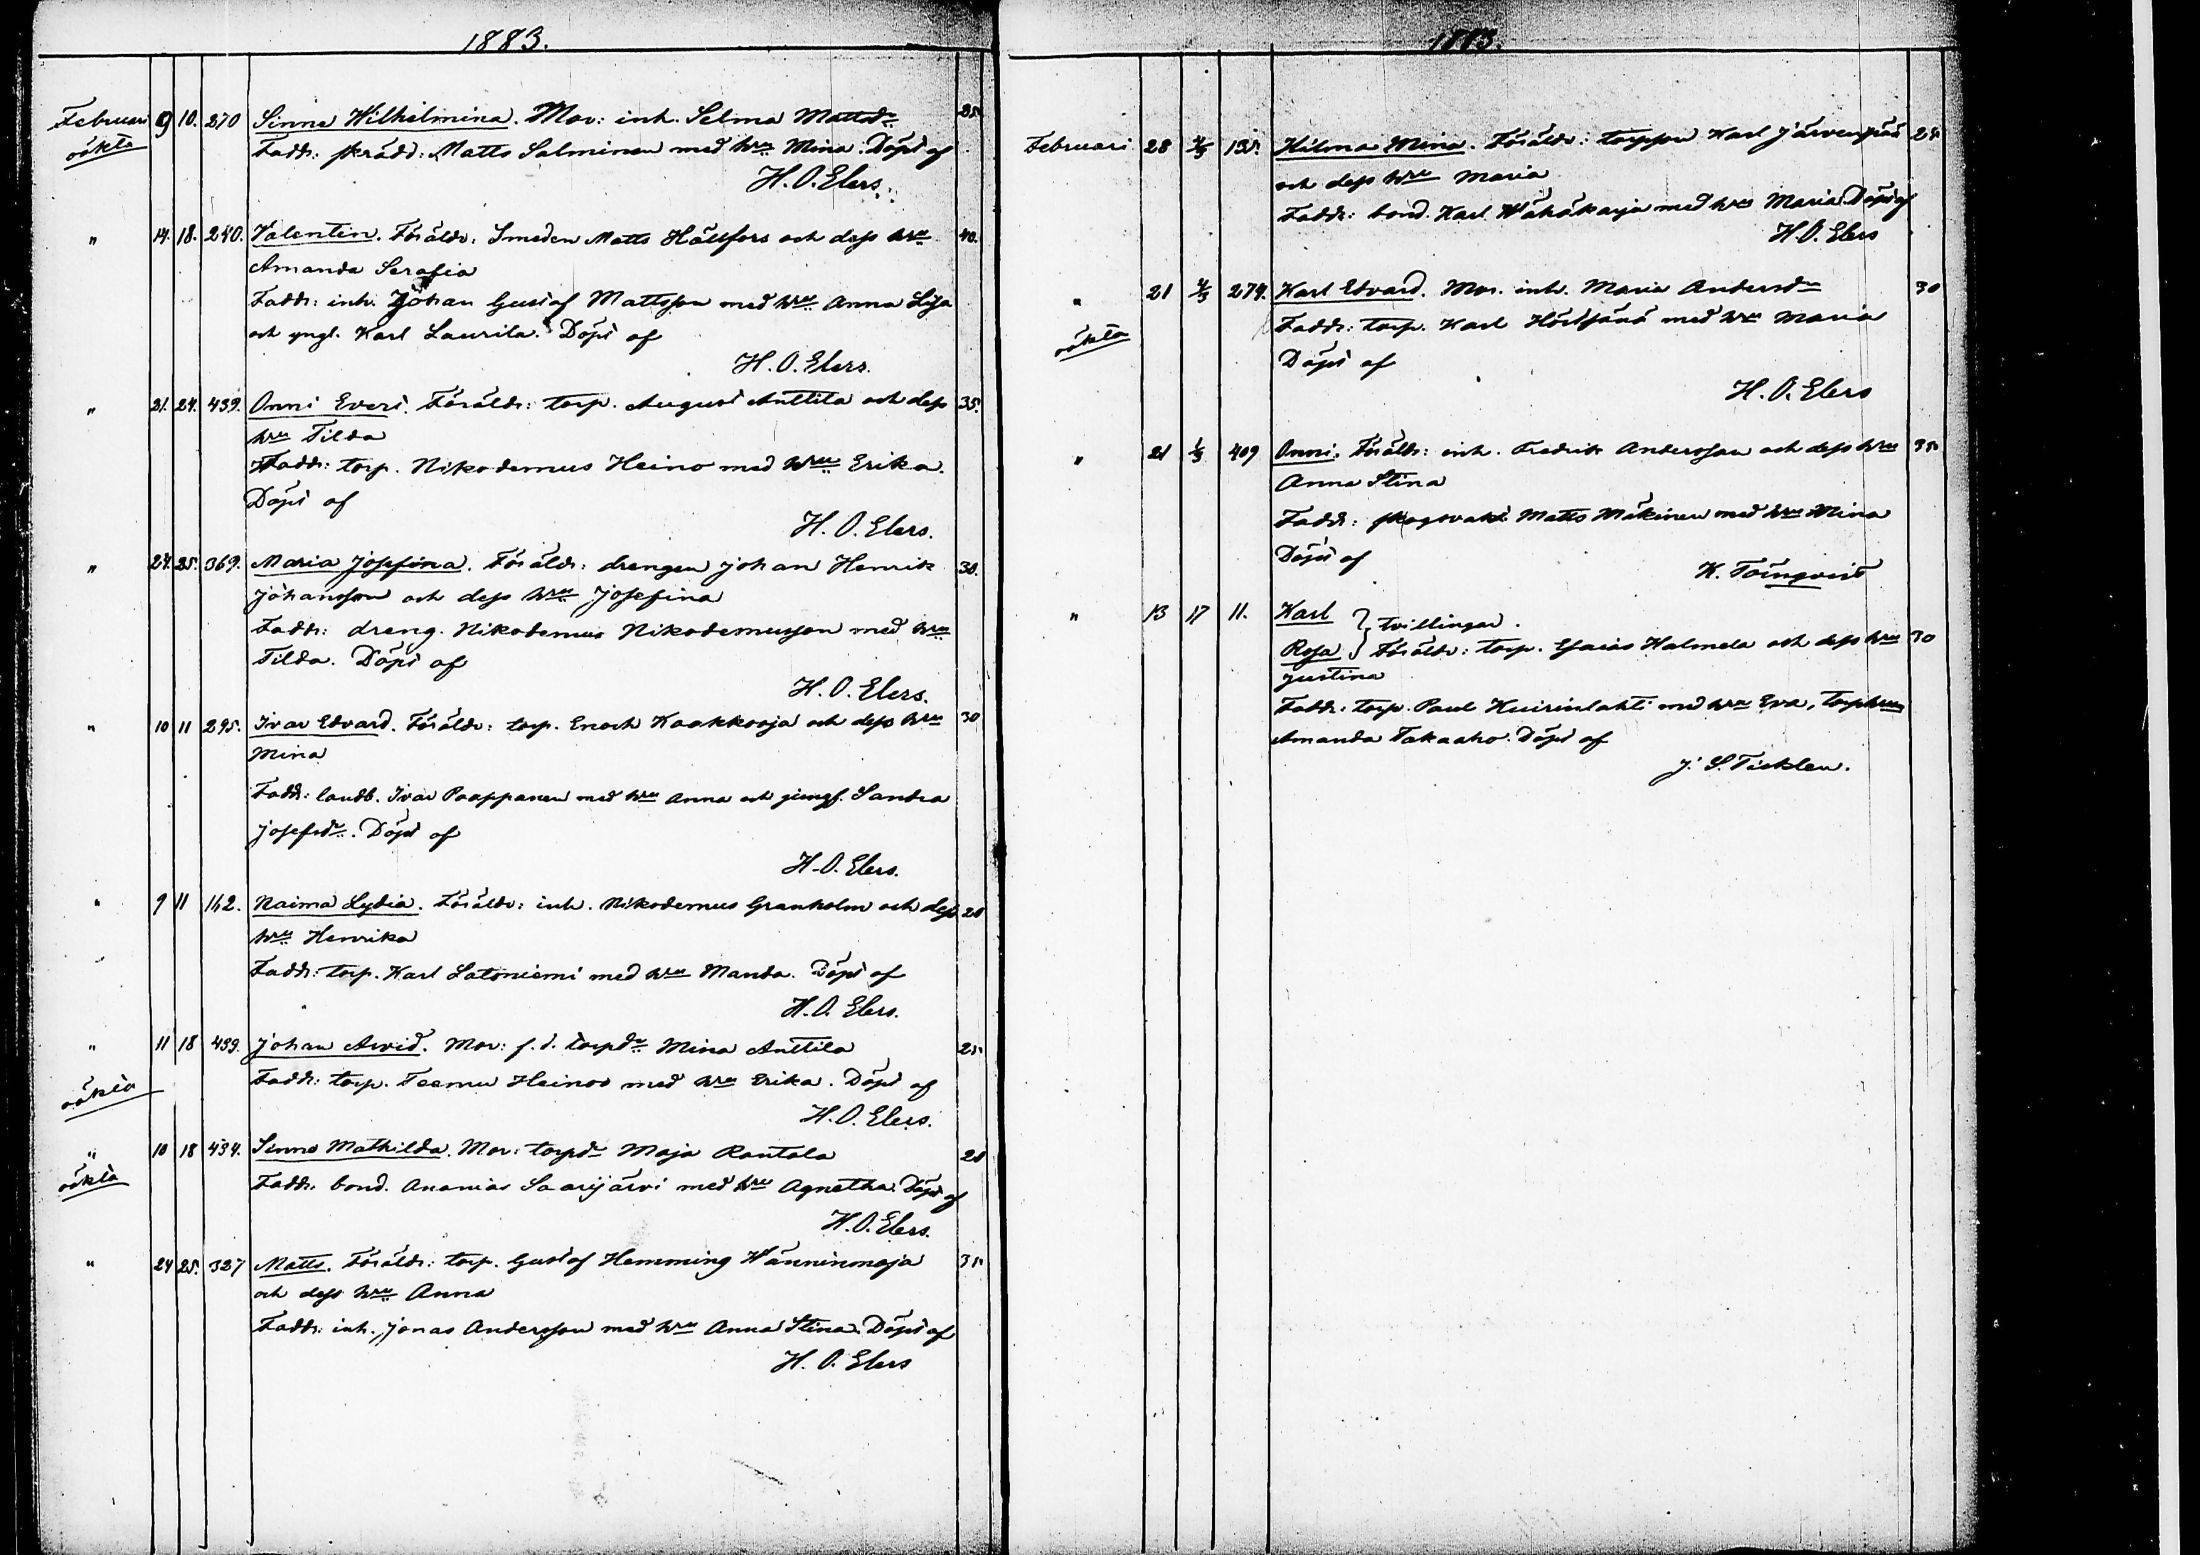 1883.
Februari 9 10. 270 Sinna Wilhelmina. Mor: inh. Selma Mattsdr 25
oäkta Fadd: skrädd: Matts Salminen med hru Mina. Döpt af
H. O. Elers.
" 14. 18. 240. Valentin. Föräldr: Smeden Matts Hällfors och dess hru 40.
Amanda Serafia
Fadd: inh. Johan Gustaf Mattsson med hru Anna Lisa
och yngl. Karl Laurila. Döpt af
H. O. Elers.
" 21. 24. 439. Onni Evert. Föräldr: torp. August Anttila och dess 35.
hru Tilda
Fadd: torp. Nikodemus Heino med hru Erika.
Döpt af
H. O. Elers.
" 24. 25. 369. Maria Josefina. Föräldr: drengen Johan Henrik 30.
Johansson och dess hru Josefina
Fadd: dreng. Nikodemus Nikodemusson med hru
Tilda. Döpt af
H. O. Elers.
" 10 11 295. Ivar Edvard. Föräldr: torp. Enoch Kaakkooja och dess hru 30
Mina
Fadd: landb. Ivar Paappanen med hru Anna och jungf. Sandra
Josefsdr. Döpt af
H. O. Elers.
" 9 11 142. Naima Lydia. Föräldr: inh. Nikodemus Granholm och dess 20
hru Henrika
Fadd: torp. Karl Latoniemi med hru Manda. Döpt af
H. O. Elers.
" 11 18 439. Johan Arvid. Mor: f. d. torpdr Mina Anttila 25
oäkta Fadd: torp. Teemu Heinoo med hru Erika. Döpt af
H. O. Elers.
" 10 18 434. Sinna Mathilda. Mor: torpdr Maja Rantala 20
oäkta Fadd: bond. Ananias Saarijärvi med hru Agnetha. Döpt af
H. O. Elers.
" 24 25. 327 Matts. Föräldr: torp. Gustaf Hemming Hänninmaja 35
och dess hru Anna
Fadd: inh. Jonas Andersson med hru Anna Stina. Döpt af
H. O. Elers
1883.
Februari 28 4/3 135. Hilma Mina. Föräldr: torppen Karl Järvenpää 25
och dess hru Maria
Fadd: bond. Karl Wähäkarja med hru Maria. Döpt af
H. O. Elers
" 21 4/3 274. Karl Edvard. Mor. inh. Maria Andersdr 30
oäkta Fadd: torp. Karl med hru Maria
Döpt af
H. O. Elers
" 21 1/3 409 Onni. Föräldr: inh. Fredrik Andersson och dess hru 35
Anna Stina
Fadd: skogsvakt. Matts Mäkinen med hru Mina
Döpt af
K. Törnqvist
" 13 17 11. Karl } tvillingar.
Rosa } Föräldr: torp. Esaias Halmela och dess hru 30
Justina
Fadd: torp. Paul Kuirinlahti med hru Eva, torphru
Amanda Takaaho. Döpt af
J. S. Ticklen.